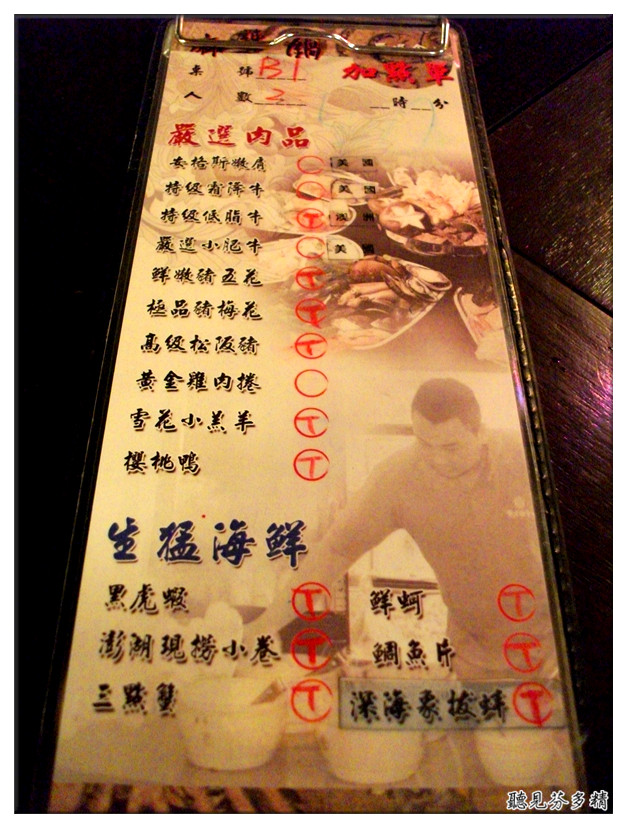 麻 鍋
桌 號 B1 加點單
人 數 2 時 分
嚴選肉品
安格斯嫩肩 美 國
特級霜降牛 美 國
特級低脂牛 T 澳 洲
嚴選小肥牛 美 國
鮮嫩豬五花 T
極品豬梅花 T
高級松阪豬 T
黃金雞肉捲
雪花小羔羊 T
櫻桃鴨 T
生猛海鮮
黑虎蝦 T 鮮蚵 T
澎湖現撈小卷 T 鯛魚片 T
三點蟹 T 深海象拔蚌 T
聽見芬多精